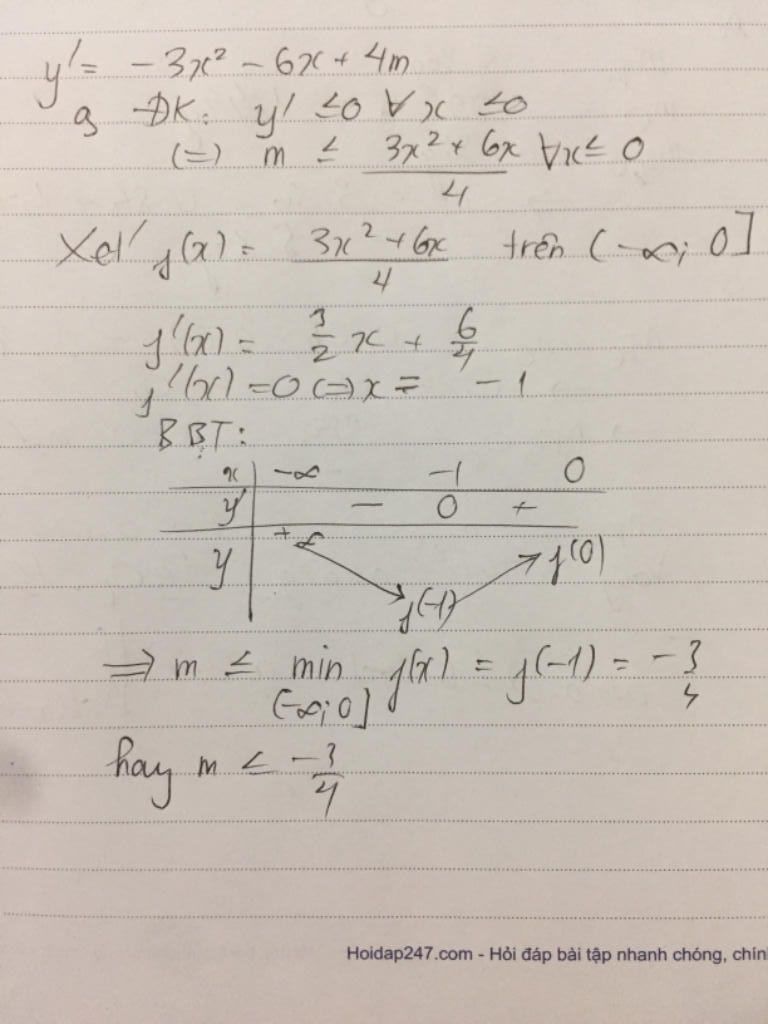 y' = -3x² - 6x + 4m
a ĐK: y' ≤0 ∀x ≤0
(=) m ≤ (3x² + 6x)/4 ∀x ≤ 0
Xét f(x) = (3x² + 6x)/4 trên (-∞; 0]
f'(x) = 3/2 x + 6/4
f'(x) = 0 (=) x = -1
BBT:
x -∞ -1 0
y' - 0 +
y +∞ f(-1) f(0)
=> m ≤ min f(x) = f(-1) = -3/4
(-∞; 0]
hay m ≤ -3/4
Hoidap247.com - Hỏi đáp bài tập nhanh chóng, chín